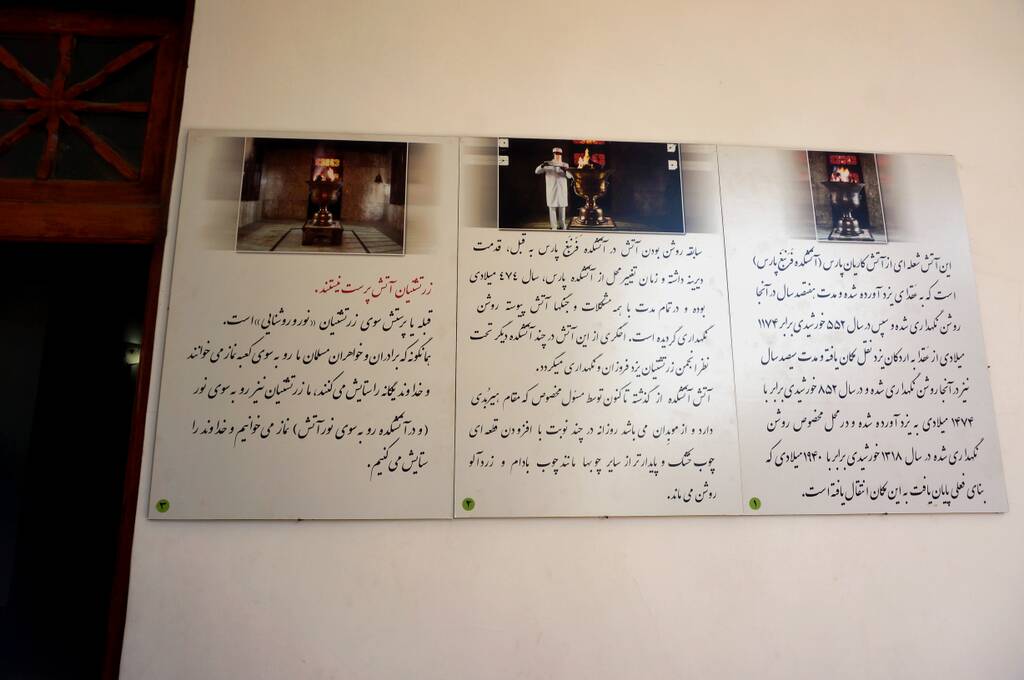 این آتش شعله ای از آتش کاریان پارس (آتشکده فَرَنبَغ پارس)
است که به عقدای یزد آورده شده و مدت هفتصد سال در آنجا
روشن نگهداری شده و سپس در سال ۵۵۲ خورشیدی برابر ۱۱۷۴
میلادی از عقدا به اردکان یزد نقل مکان یافته و مدت سیصد سال
نیز در آنجا روشن نگهداری شده و در سال ۸۵۲ خورشیدی برابر با
۱۴۷۴ میلادی به یزد آورده شده و در محل مخصوص روشن
نگهداری شده در سال ۱۳۱۸ خورشیدی برابر با ۱۹۴۰ میلادی که
بنای فعلی پایان یافت به این مکان انتقال یافته است.
۱
سابقه روشن بودن آتش در آتشکده فَرَنبَغ پارس به قبل، قدمت
دیرینه داشته و زمان تغییر محل از آتشکده پارس، سال ۴۷۴ میلادی
بوده و در تمام مدت با همه مشکلات و جنگها آتش پیوسته روشن
نگهداری گردیده است. اخگری از این آتش در چند آتشکده دیگر تحت
نظر انجمن زرتشتیان یزد فروزان و نگهداری میگردد.
آتش آتشکده از گذشته تاکنون توسط مسئول مخصوص که مقام هیربُدی
دارد و از موبدان می باشد روزانه در چند نوبت با افزودن قطعه ای
چوب خشک و پایدارتر از سایر چوبها مانند چوب بادام و زردآلو
روشن می ماند.
۲
زرتشتیان آتش پرست نیستند.
قبله یا پرستش سوی زرتشتیان «نور و روشنایی» است.
همانگونه که برادران و خواهران مسلمان ما رو به سوی کعبه نماز می خوانند
و خداوند یگانه را ستایش می کنند، ما زرتشتیان نیز رو به سوی نور
(و در آتشکده رو به سوی نور آتش) نماز می خوانیم و خداوند را
ستایش می کنیم.
۳